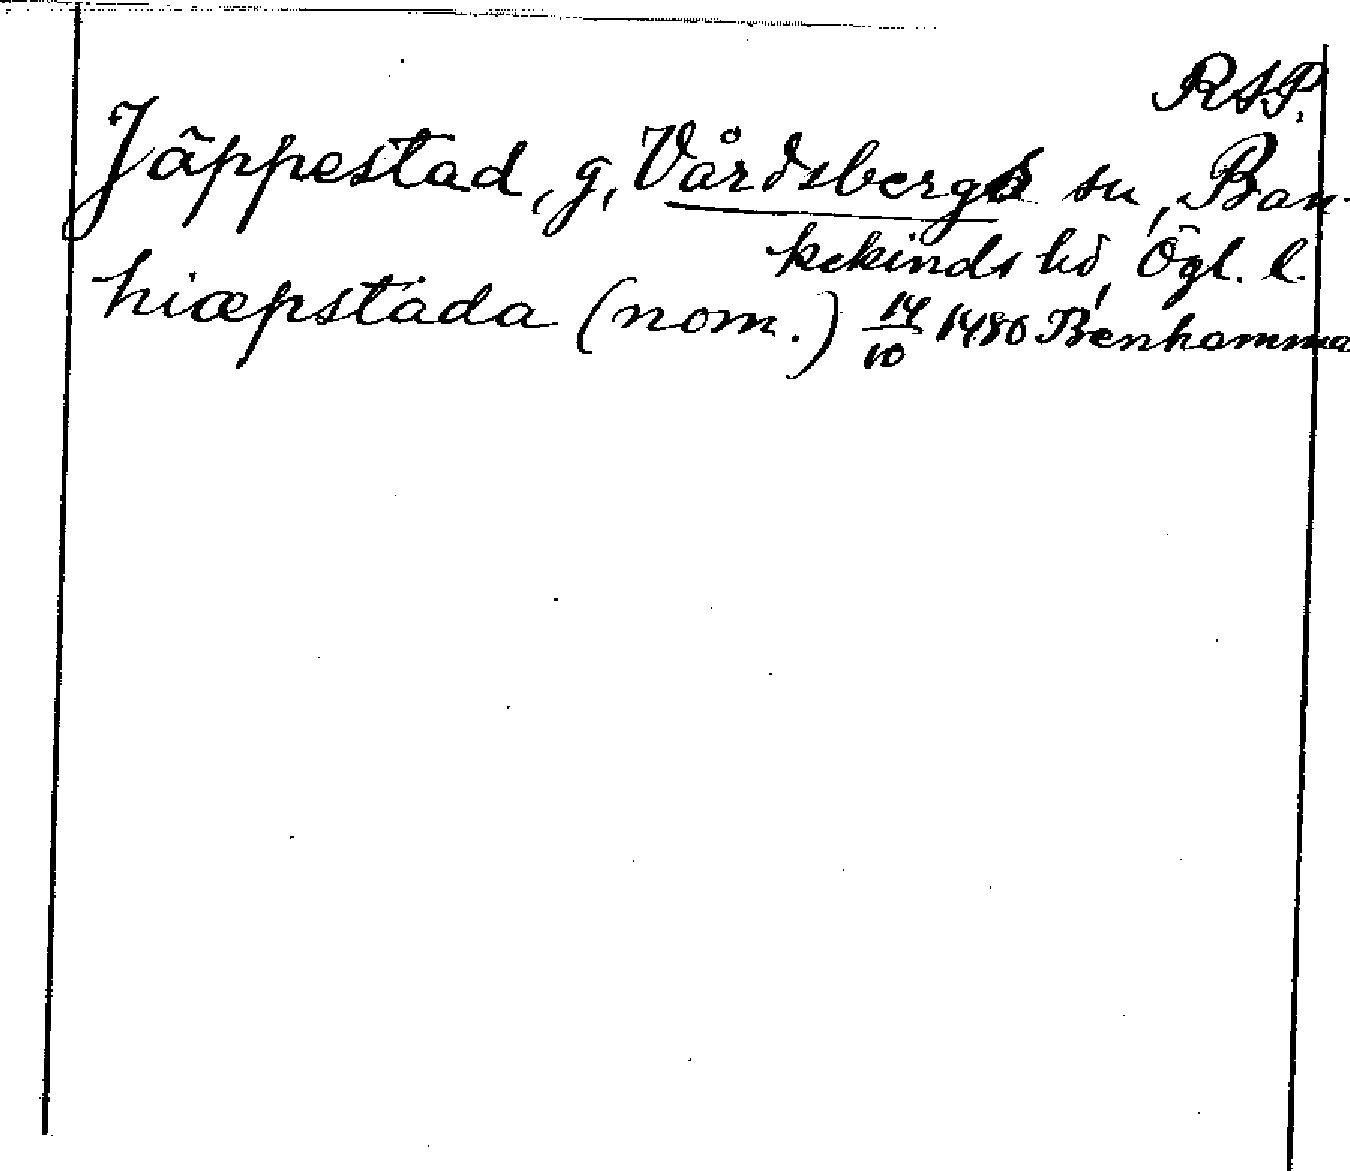 RAP.
Jäppestad, g, Vårdsbergs sn, Ban-
kekinds hd, Ögl. l.
hiæpstada (nom.) 14/10 1480 Benhamma